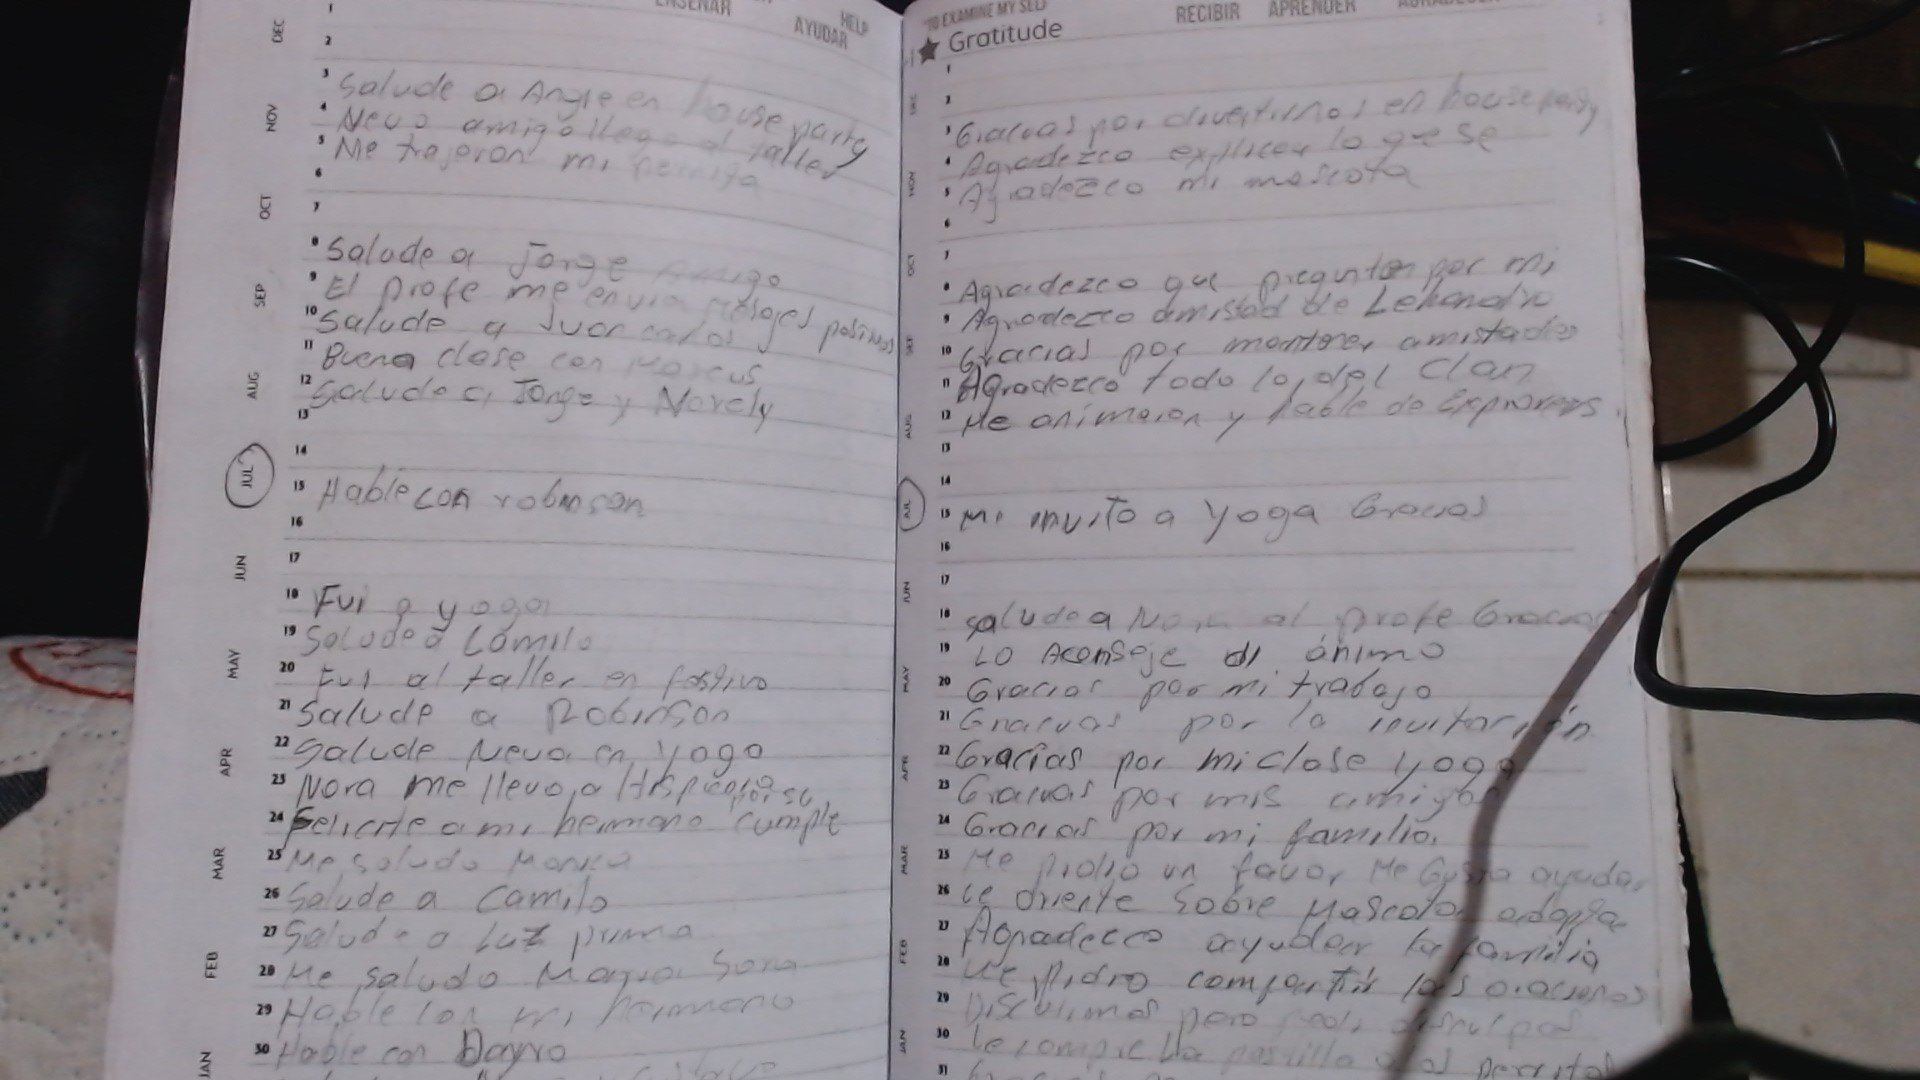 ENSEÑAR
HELP
AYUDAR
DEC
1
2
3 Salude a Angie en house party
NOV
4 Nevo amigo llego al taller
5 Me trajeron mi
6
OCT
7
8 Salude a Jorge Amigo
9 El profe me envia positivos
SEP
10 Salude a Juan carlos
11 Buena clase con Marcus
AUG
12 Salude a Jorge y Norely
13
14
JUL
15 Hable con robinson
16
17
JUN
18 Fui a yoga
19 Salude a Camilo
MAY
20 Fui al taller en festivo
21 Salude a Robinson
22 Salude Neva en yoga
APR
23 Nora me llevo a por su
24 Felicite a mi hermano cumple
MAR
25 Me saludo Monica
26 Salude a Camilo
27 Salude a Luz prima
FEB
28 Me saludo Maria Sona
29 Hable con mi hermano
30 Hable con Dayro
JAN
TO EXAMINE MY SELF
RECIBIR APRENDER
Gratitude
1
2
3 Gracias por divertirnos en house party
4 Agradezco explicar lo que se
NOV
5 Agradezco mi mascota
6
OCT
7
8 Agradezco que preguntan por mi
9 Agradezco amistad de
SEP
10 Gracias por mantener amistades
11 Agradezco todo lo del clan
AUG
12 Me animaron y hable de
13
14
JUL
15 Me invito a yoga Gracias
16
17
JUN
18 salude a Nora al profe Gracias
19 Lo Aconseje di ánimo
MAY
20 Gracias por mi trabajo
21 Gracias por la invitación
22 Gracias por mi clase yoga
APR
23 Gracias por mis amigos
24 Gracias por mi familia.
MAR
25 Me pidio un favor Me Gusta ayudar
26 Le oriente Sobre Mascota adopta
27 Agradezco ayudar la familia
FEB
28 Me pidio compartir las oraciones
29 Discutimos pero pedi disculpas
30 Le compre la pastilla a
JAN
31